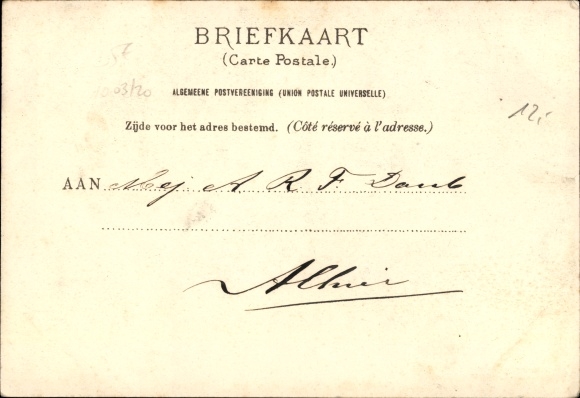 BRIEFKAART
(Carte Postale.)
03120
ALGEMEENE POSTVEREENIGING (UNION POSTALE UNIVERSELLE)
12,-
Zijde voor het adres bestemd. (Côté réservé à l'adresse.)
AAN Mej A. R. F. Daub
Alhier